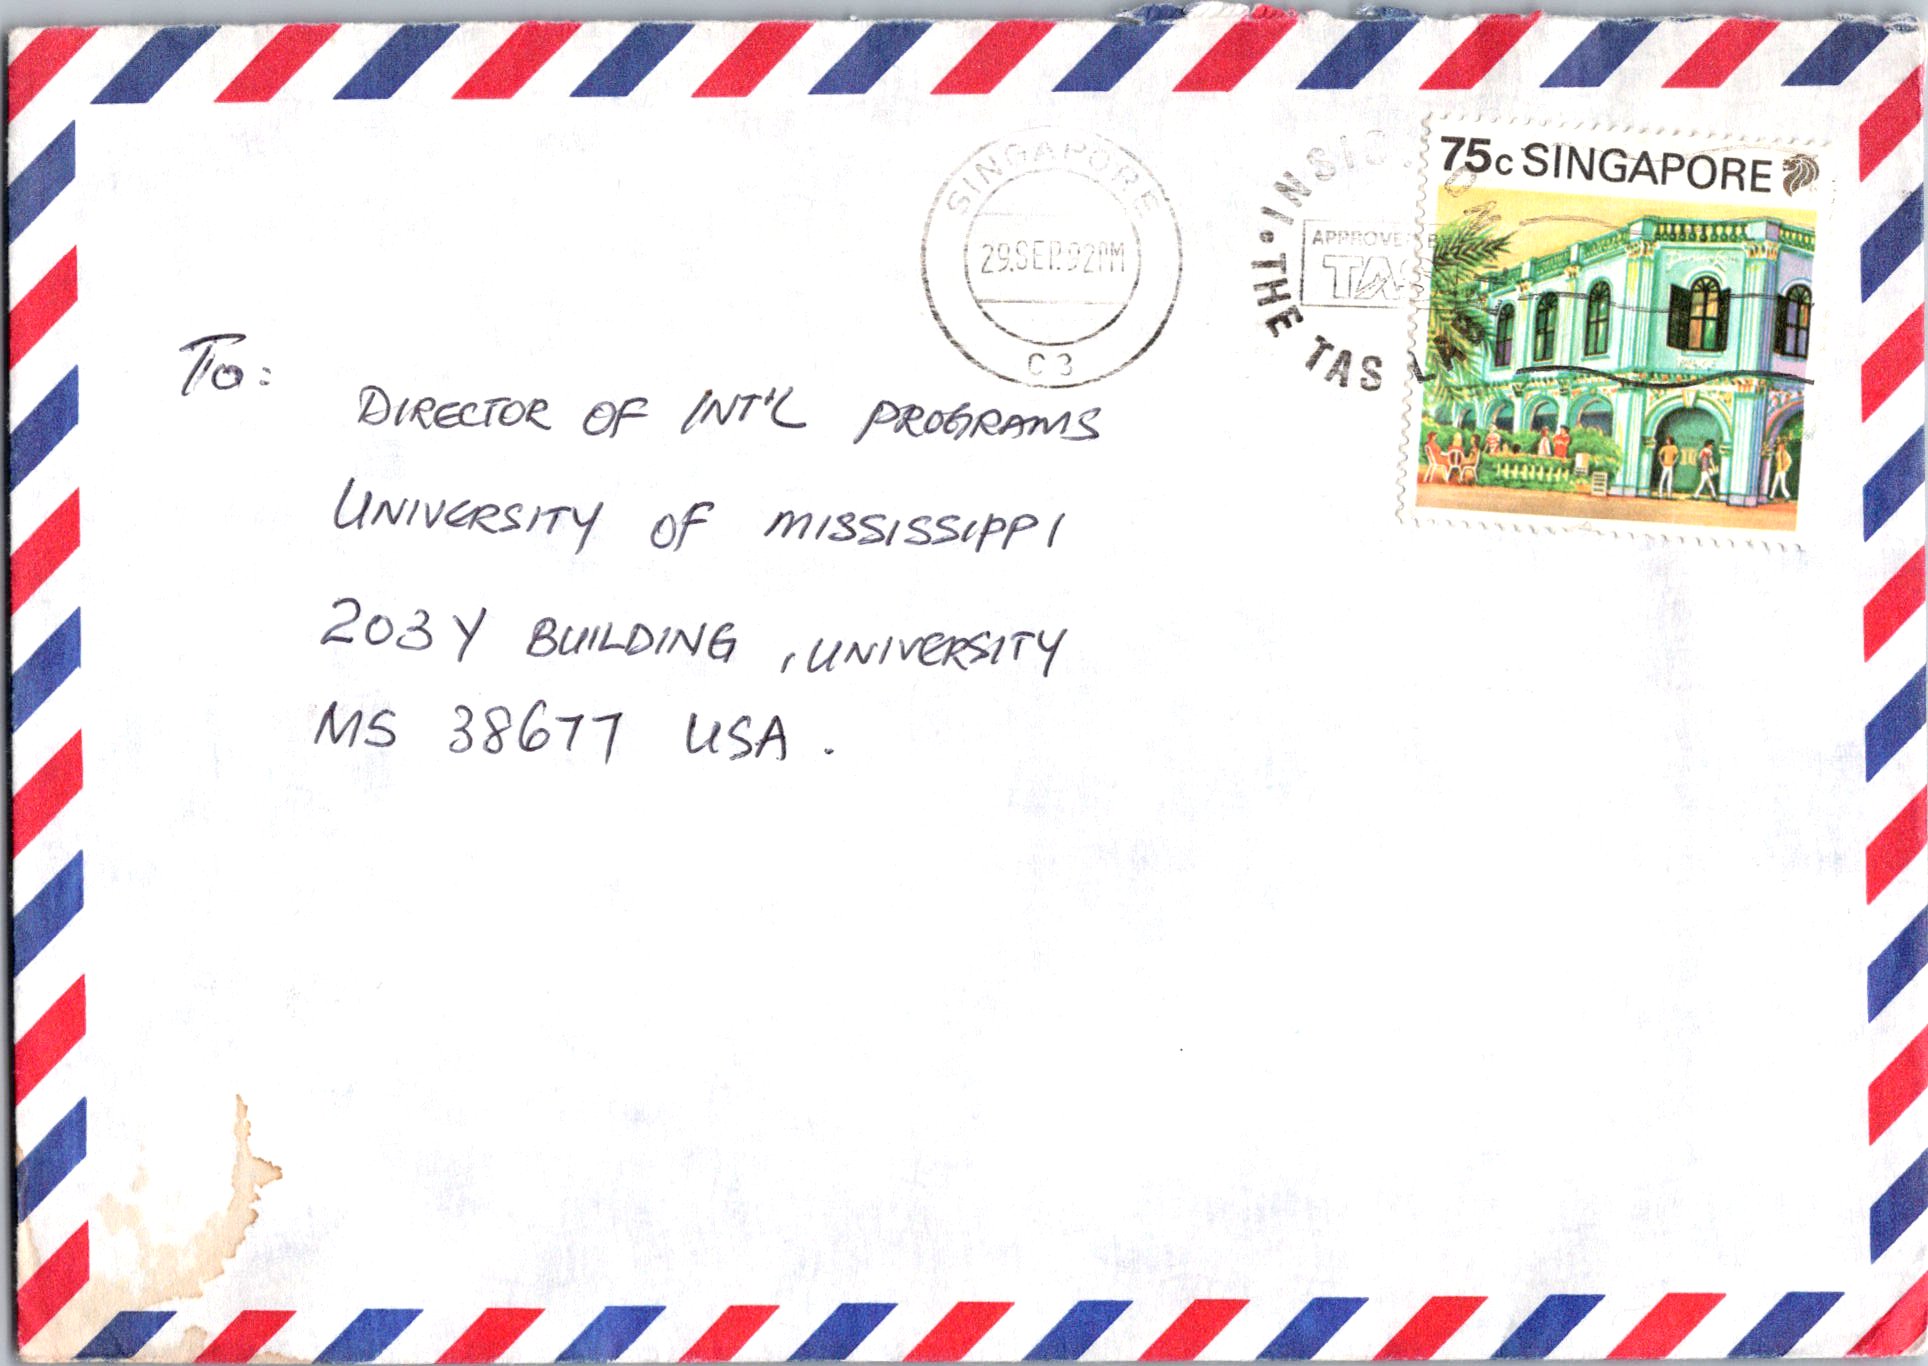 SINGAPORE
29.SEP.92PM
C3
INSIST ON
THE TAS LABEL
APPROVED BY
TAS
75c SINGAPORE
To:
DIRECTOR OF INT'L PROGRAMS
UNIVERSITY OF MISSISSIPPI
203Y BUILDING, UNIVERSITY
MS 38677 USA.